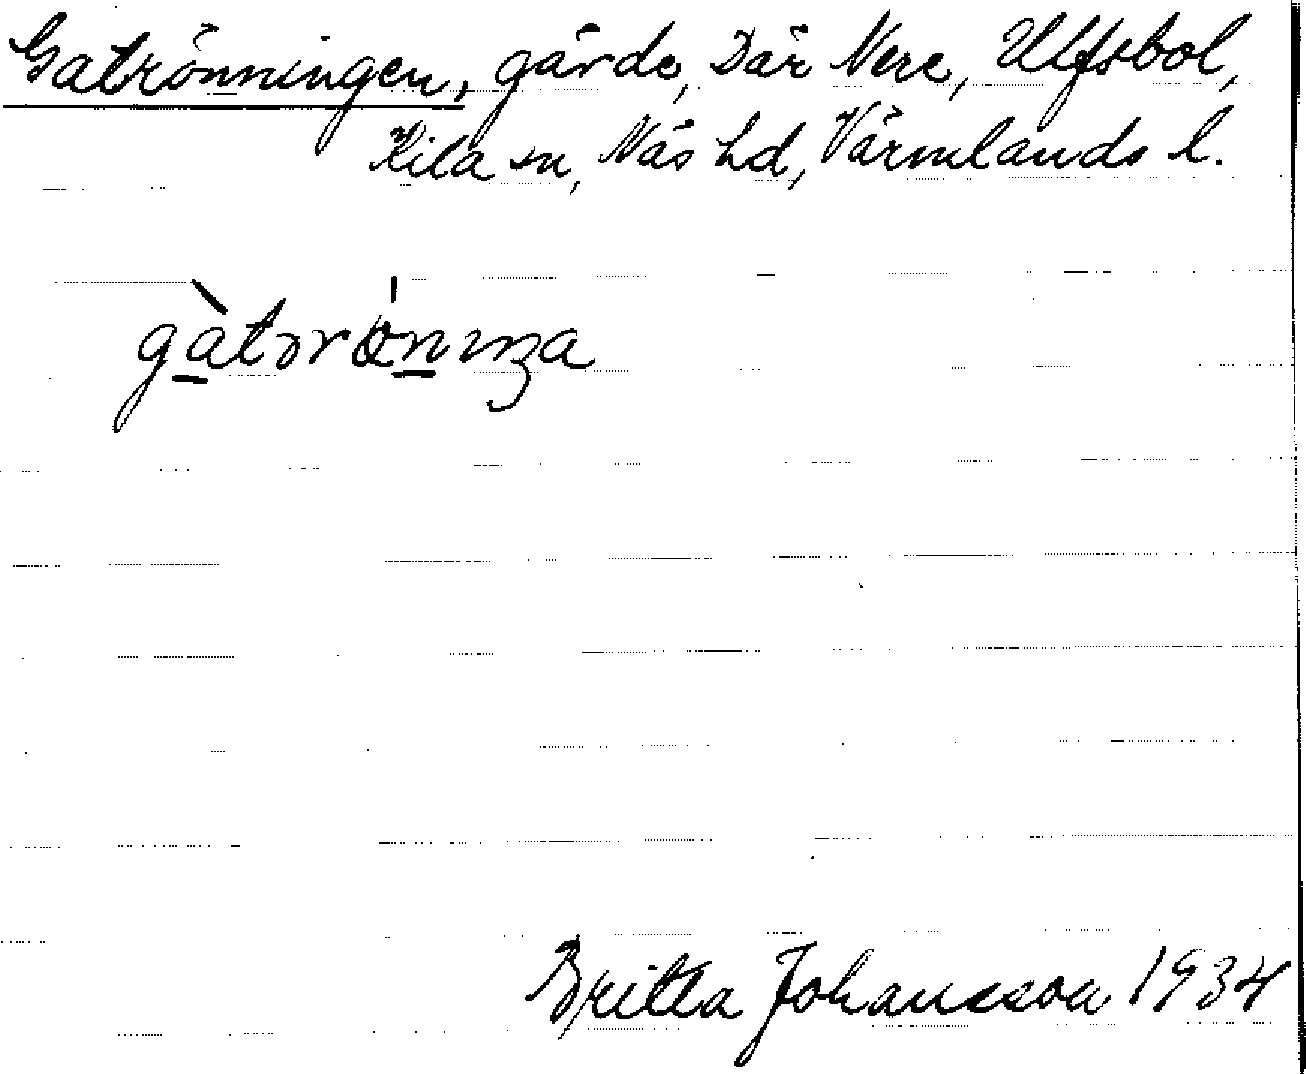 Gatrönningen, gärde, Där Nere, Ulfsbol,
Kila sn, Näs hd, Värmlands l.
Britta Johansson 1934